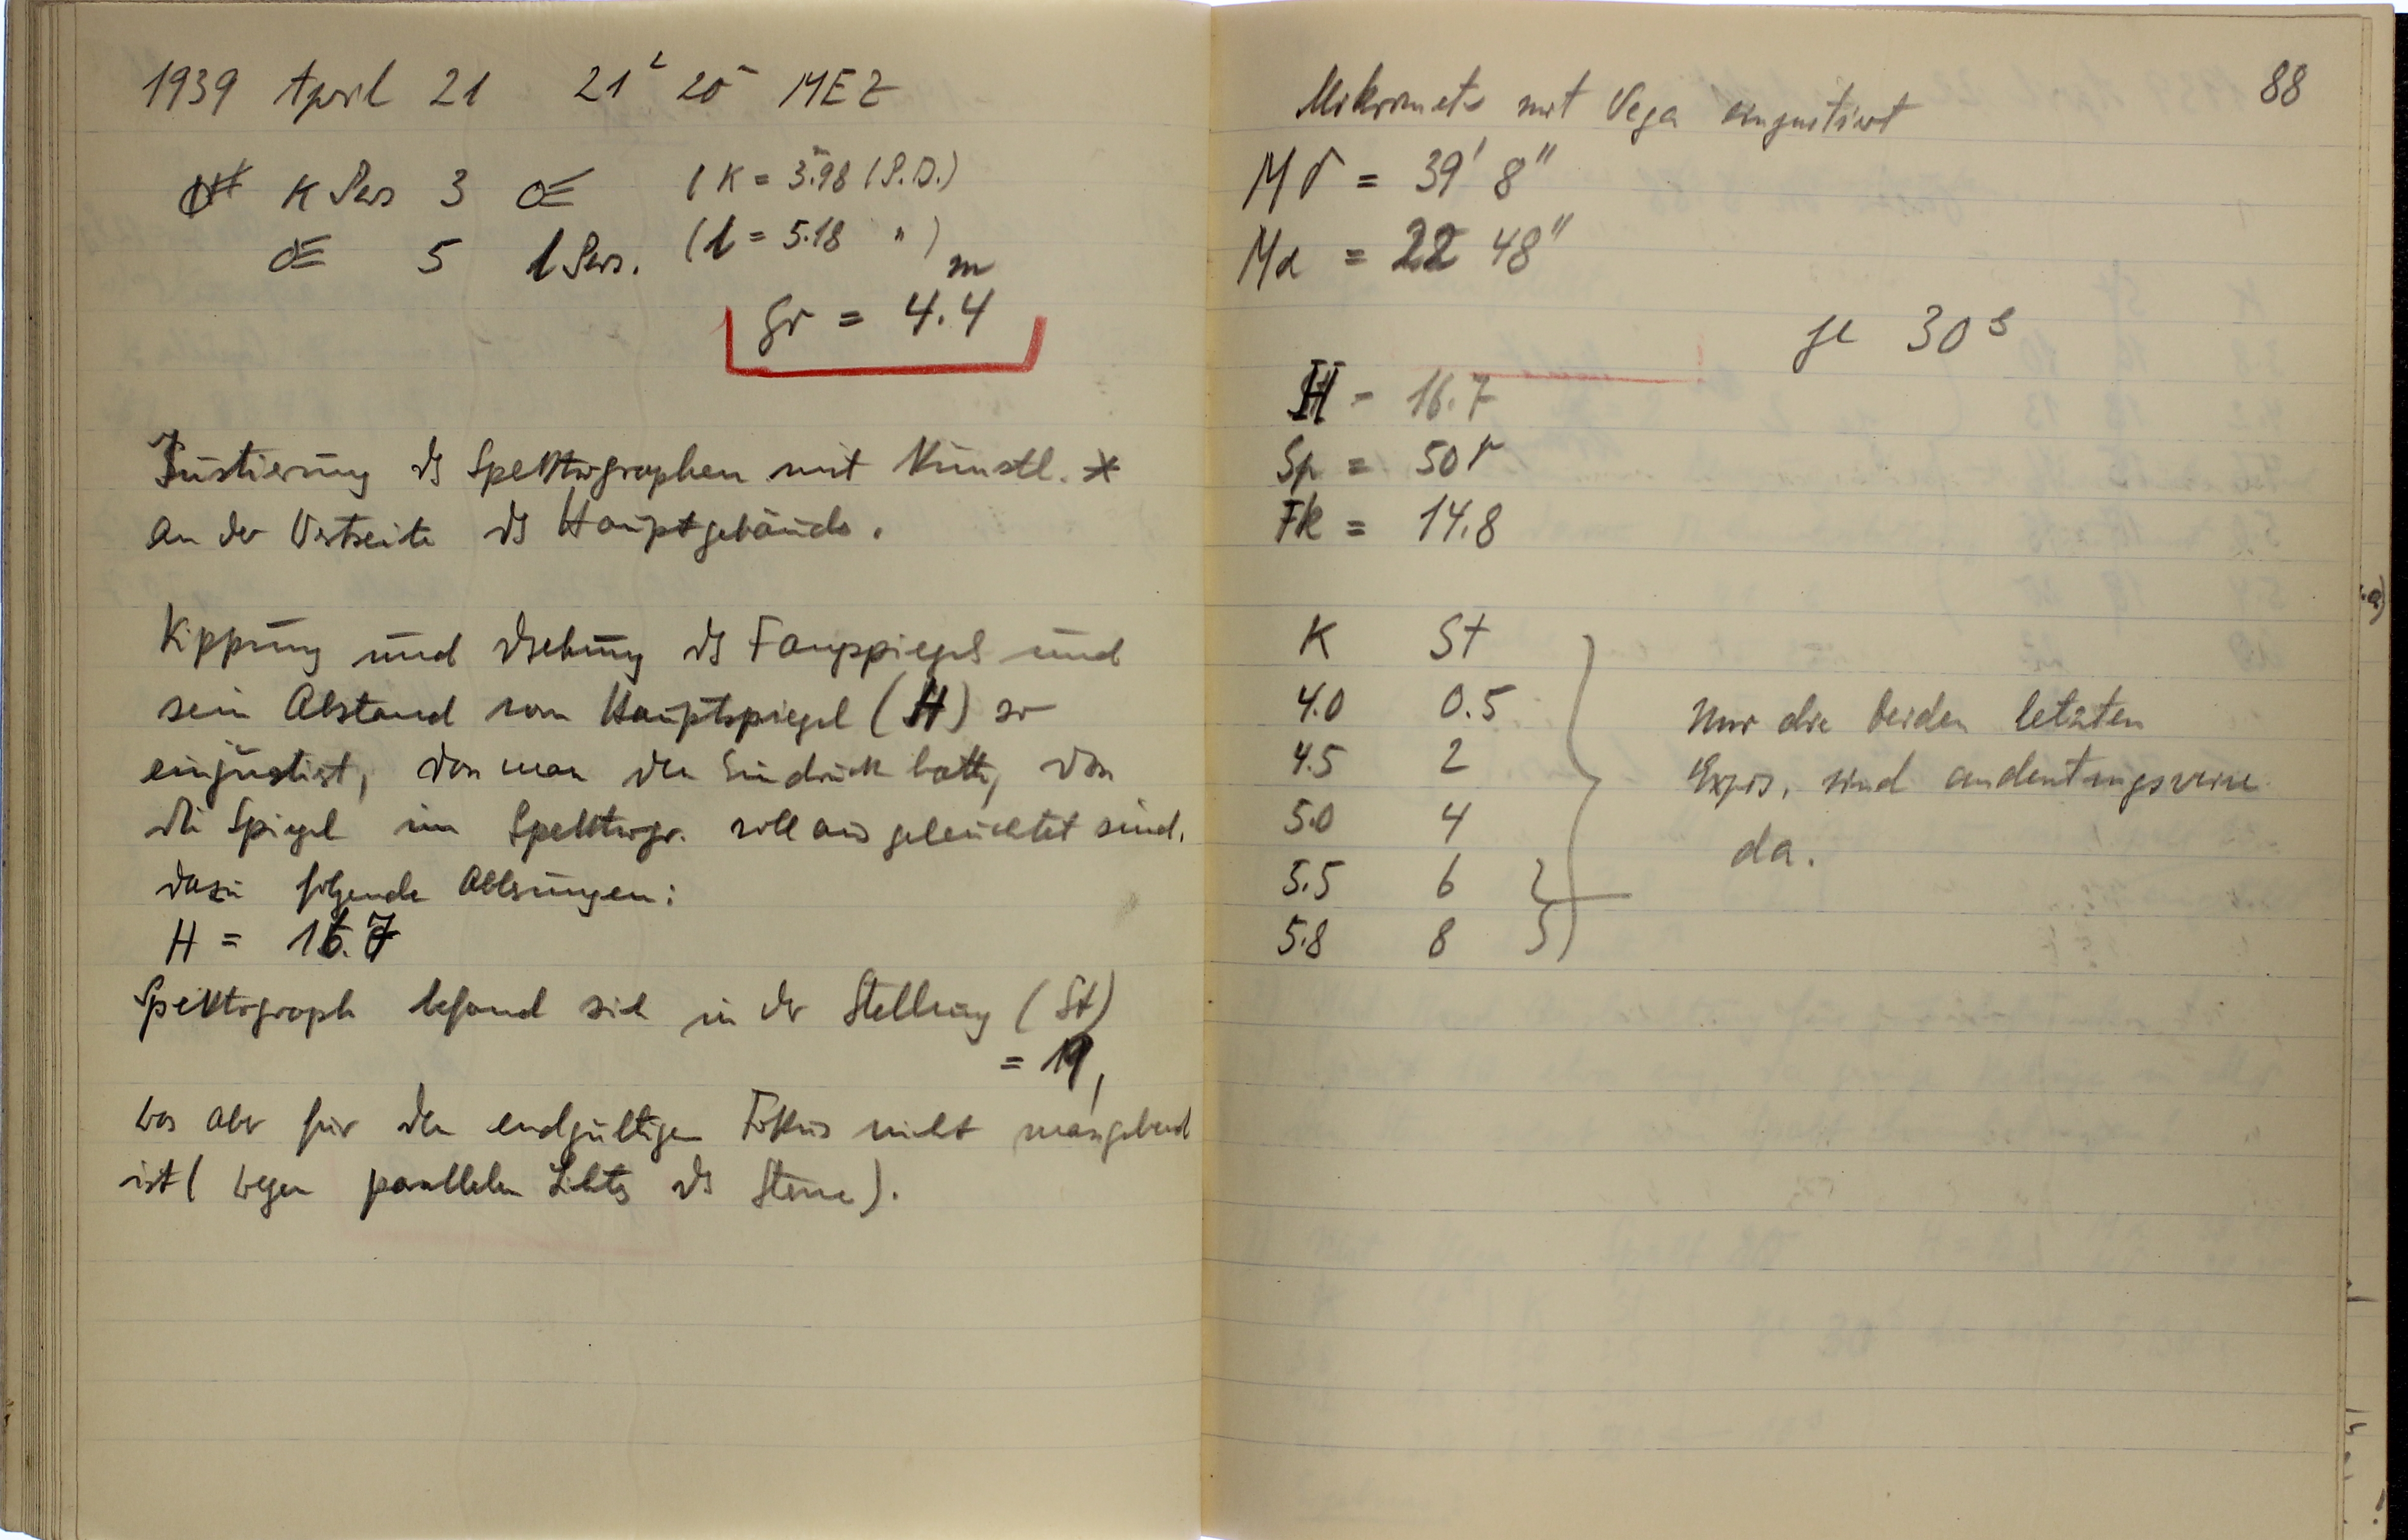 1939 April 21 21ʰ 20ᵐ MEZ
κ Pers 3 ☄ (κ = 3.ᵐ98 (P.D.)
☄ 5 l Pers. (l = 5.18 " )
Gr = 4.4ᵐ
Justierung ds Spektrographen mit Künstl. *
an der Westseite ds Hauptgebäuds.
Kippung und Drehung ds Fangspiegels und
sein Abstand vom Hauptspiegel (H) so
einjustiert, dass man den Eindruck hatte, dass
die Spiegel im Spektrogr. voll ausgeleuchtet sind.
Dazu folgende Ablesungen:
H = 16.7
Spektrograph befand sich in der Stellung (St)
= 19,
was aber für den endgültigen Fokus nicht massgebend
ist (wegen parallelen Lichts ds Sterne).
88
Mikrometer mit Vega einjustiert
Mδ = 39' 8"
Mα = 22 48"
je 30ˢ
H = 16.7
Sp = 50μ
Fk = 14.8
K St
4.0 0.5
4.5 2
5.0 4
5.5 6
5.8 8
Nur die beiden letzten
Expos. sind andeutungsweise
da.